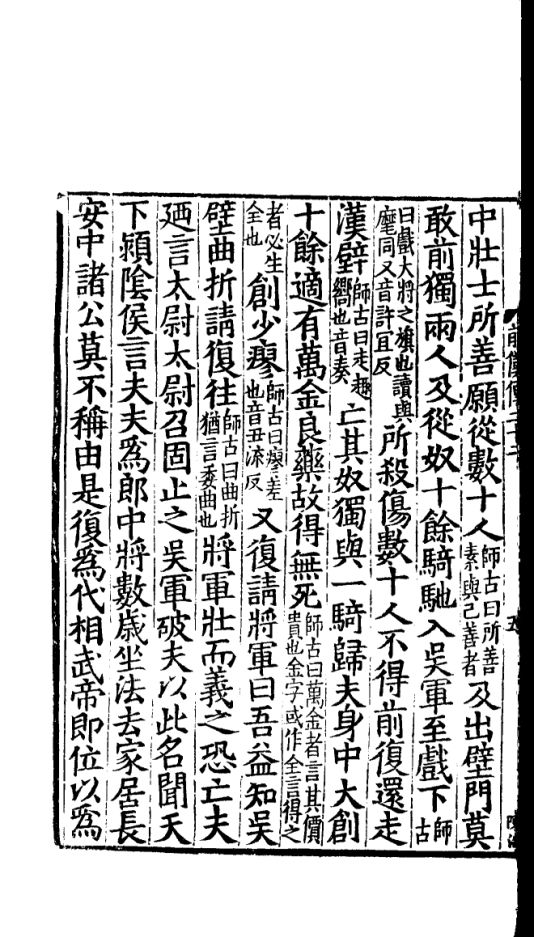 前漢傳二十二
五
中壯士所善願從數十人師古曰所善素與己善者及出壁門莫
敢前獨兩人及從奴十餘騎馳入吳軍至戲下師古
曰戲大將之旗也讀與麾同又音許宜反所殺傷數十人不得前復還走
漢壁師古曰走趣嚮也音奏亡其奴獨與一騎歸夫身中大創
十餘適有萬金良藥故得無死師古曰萬金者言其價貴也金字或作全言得之
者必生全也創少瘳師古曰瘳差也音丑流反又復請將軍曰吾益知吳
壁曲折請復往師古曰曲折猶言委曲也將軍壯而義之恐亡夫
廼言太尉太尉召固止之吳軍破夫以此名聞天
下潁陰侯言夫夫爲郎中將數歲坐法去家居長
安中諸公莫不稱由是復爲代相武帝即位以爲